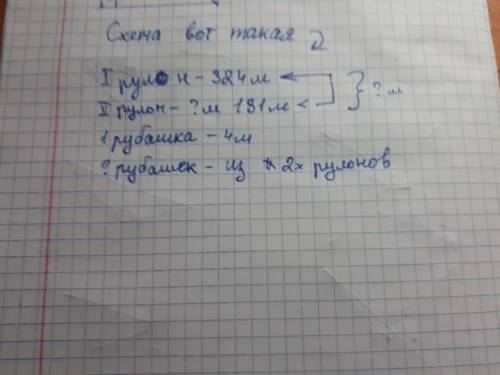 Схема вот такая
I рулон - 324м
II рулон - ?м 131м <
} ?м
1 рубашка - 4м
? рубашек - из 2х рулонов